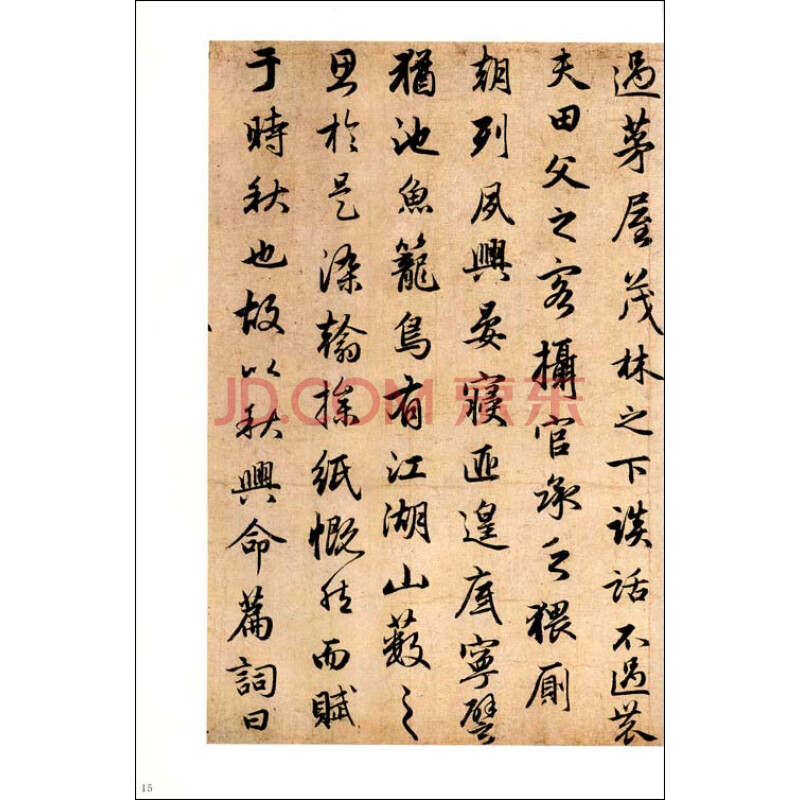 過茅屋茂林之下談話不過農
夫田父之客攝官承乏猥廁
朝列夙興晏寢匪遑底寧譬
猶池魚籠鳥有江湖山藪之
思於是染翰操紙慨然而賦
于時秋也故以秋興命篇詞曰
JD.COM 京东
15